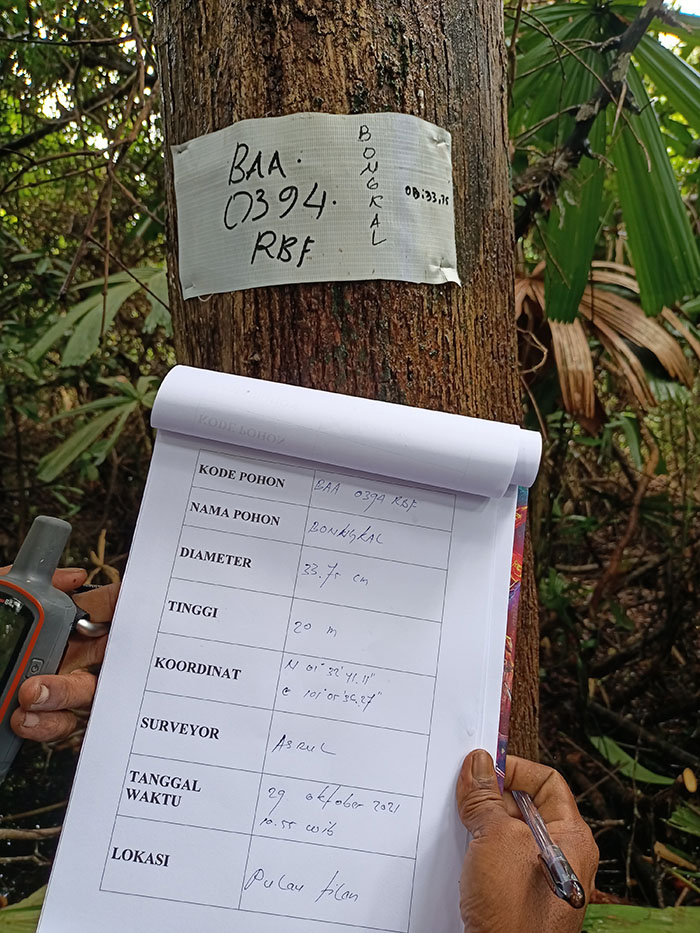 BAA.
0394.
RBF
BONGKAL
OD:33.75
KODE POHON
KODE POHON
BAA 0394 RBF
NAMA POHON
BONNGKAL
DIAMETER
33.75 cm
TINGGI
20 m
KOORDINAT
N 01° 32' 41.11"
E 101° 05' 36.27"
SURVEYOR
ASRUL
TANGGAL
WAKTU
29 oktober 2021
10.55 wib
LOKASI
Pulau tilan